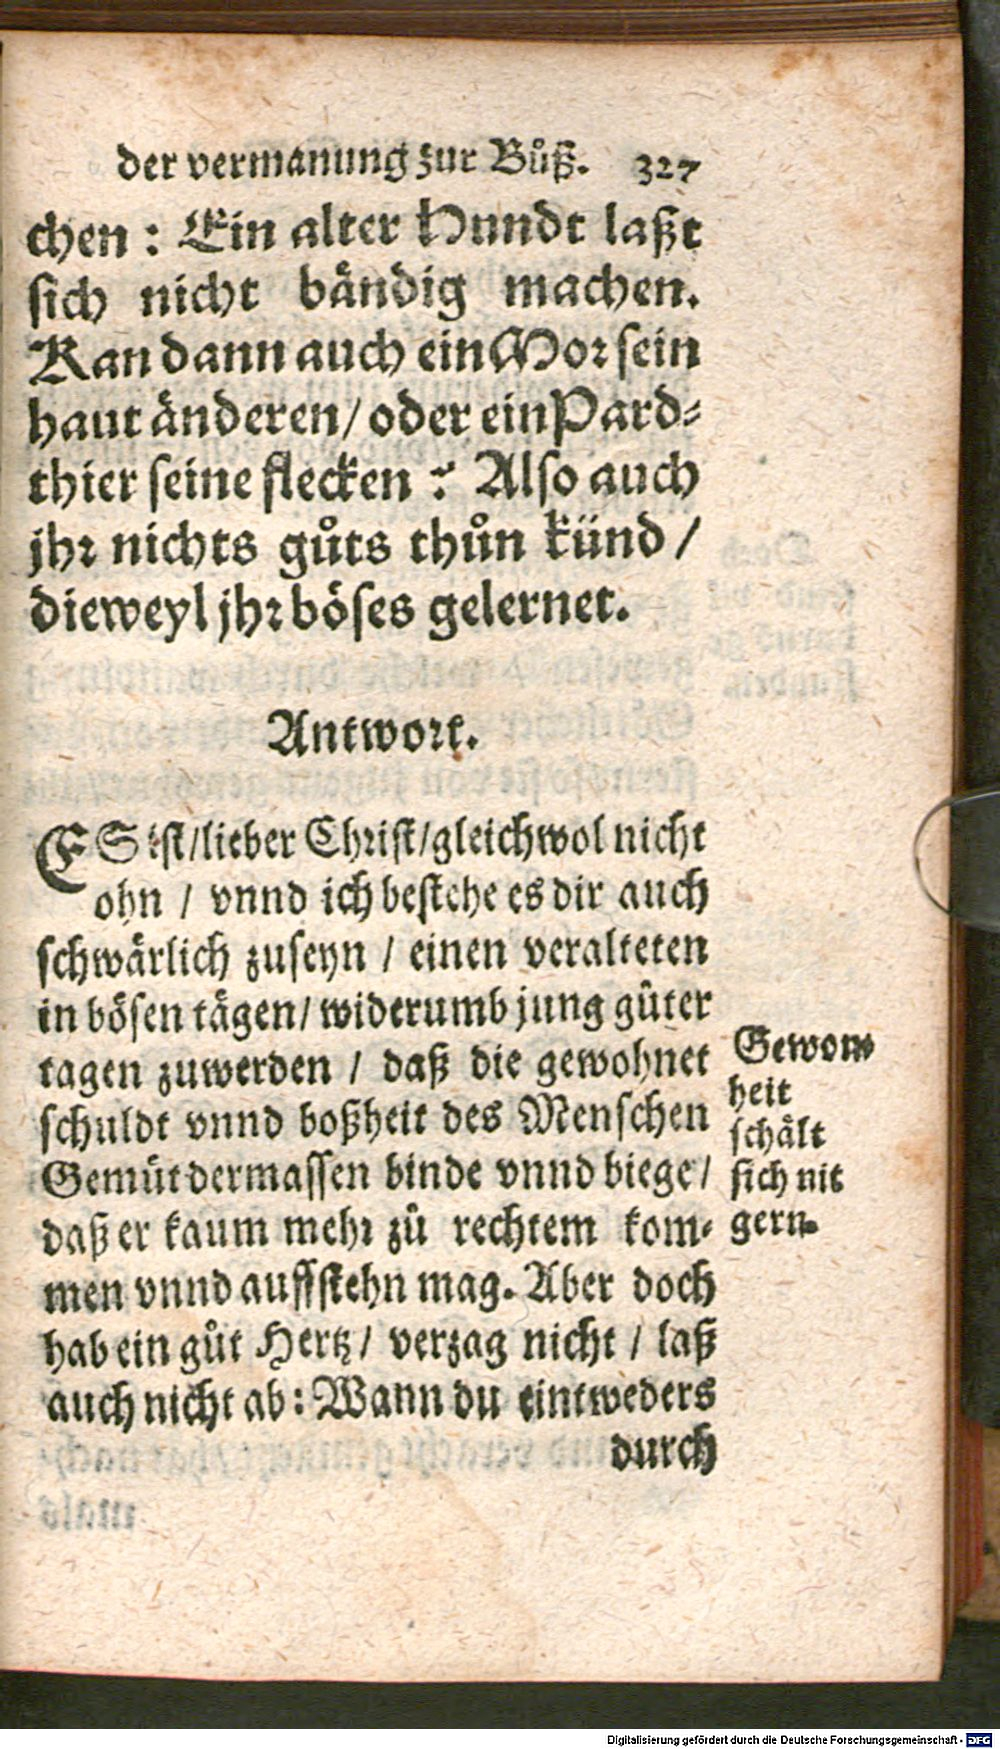 der vermanung zur Bůß. 327
chen : Ein alter Hundt laßt
sich nicht bändig machen.
Kan dann auch ein Mor sein
haut änderen / oder ein Pard⸗
thier seine flecken ? Also auch
jhr nichts gůts thůn künd /
dieweyl jhr böses gelernet.
Antwort.
ES ist / lieber Christ / gleichwol nicht
ohn / vnnd ich bestehe es dir auch
schwärlich zuseyn / einen veralteten
in bösen tägen / widerumb jung gůter
tagen zuwerden / daß die gewohnet
schuldt vnnd boßheit des Menschen
Gemüt dermassen binde vnnd biege /
daß er kaum mehr zů rechtem kom⸗
men vnnd auffstehn mag. Aber doch
hab ein gůt Hertz / verzag nicht / laß
auch nicht ab : Wann du eintweders
durch
Gewon⸗
heit
schält
sich nit
gern.
Digitalisierung gefördert durch die Deutsche Forschungsgemeinschaft - DFG